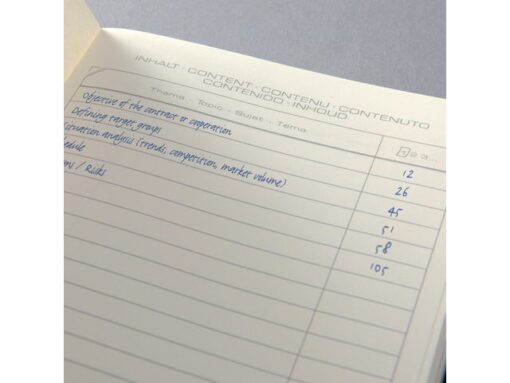 INHALT · CONTENT · CONTENU · CONTENUTO
CONTENIDO · INHOUD
Thema · Topic · Sujet · Tema
Objective of the contract or cooperation 12
Defining target groups 26
Situation analysis (trends, competition, market volume) 45
edule 51
/ Risks 58
105